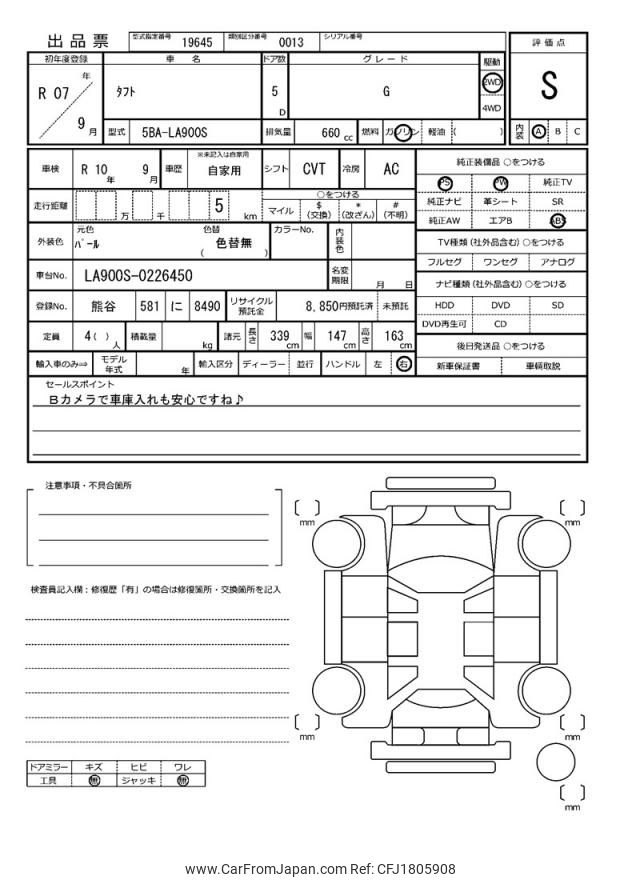 出品票 型式指定番号 19645 類別区分番号 0013 シリアル番号
初年度登録 車名 ドア数 グレード 駆動 評価点
R 07 年 9 月 タフト 5 D G 2WD 4WD S
型式 5BA-LA900S 排気量 660 cc 燃料 ガソリン 軽油 ( ) 内装 A B C
車検 R 10 年 9 月 車歴 ※未記入は自家用 自家用 シフト CVT 冷房 AC 純正装備品 ○をつける
PS PW 純正TV
走行距離 万 千 5 km ○をつける
マイル $ (交換) * (改ざん) # (不明)
純正ナビ 革シート SR
純正AW エアB ABS
外装色 元色 パール 色替 色替無 ( ) カラーNo. 内装色
TV種類(社外品含む) ○をつける
フルセグ ワンセグ アナログ
車台No. LA900S-0226450 名変期限 月 日
ナビ種類(社外品含む) ○をつける
登録No. 熊谷 581 に 8490 リサイクル預託金 8,850円預託済 未預託
HDD DVD SD
DVD再生可 CD
定員 4( ) 人 積載量 kg 諸元 長さ 339 cm 幅 147 cm 高さ 163 cm
後日発送品 ○をつける
輸入車のみ⇒ モデル年式 年 輸入区分 ディーラー 並行 ハンドル 左 右
新車保証書 車輌取説
セールスポイント
Bカメラで車庫入れも安心ですね♪
注意事項・不具合箇所
検査員記入欄：修復歴「有」の場合は修復箇所・交換箇所を記入
mm
mm
mm
mm
mm
ドアミラー キズ ヒビ ワレ
工具 無 ジャッキ 無
www.CarFromJapan.com Ref: CFJ1805908